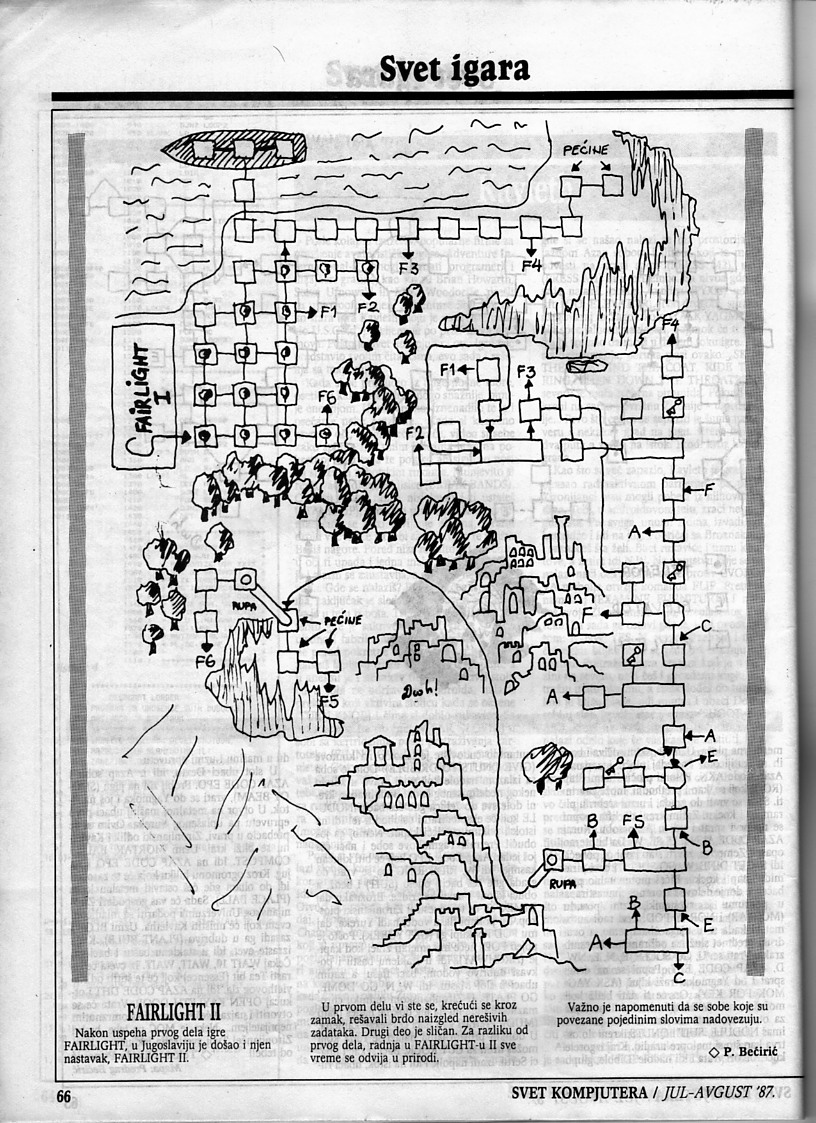 Svet igara
PEĆINE
F3
F4
F1
F2
FAIRLIGHT
I
F4
F1
F3
F6
F2
F
A
RUPA
PEĆINE
F
C
F6
F5
A
Dwh!
A
E
B
F5
B
RUPA
B
E
A
C
FAIRLIGHT II
Nakon uspeha prvog dela igre
FAIRLIGHT, u Jugoslaviju je došao i njen
nastavak, FAIRLIGHT II.
U prvom delu vi ste se, krećući se kroz
zamak, rešavali brdo naizgled nerešivih
zadataka. Drugi deo je sličan. Za razliku od
prvog dela, radnja u FAIRLIGHT-u II sve
vreme se odvija u prirodi.
Važno je napomenuti da se sobe koje su
povezane pojedinim slovima nadovezuju.
◇ P. Bećirić
66
SVET KOMPJUTERA / JUL-AVGUST '87.